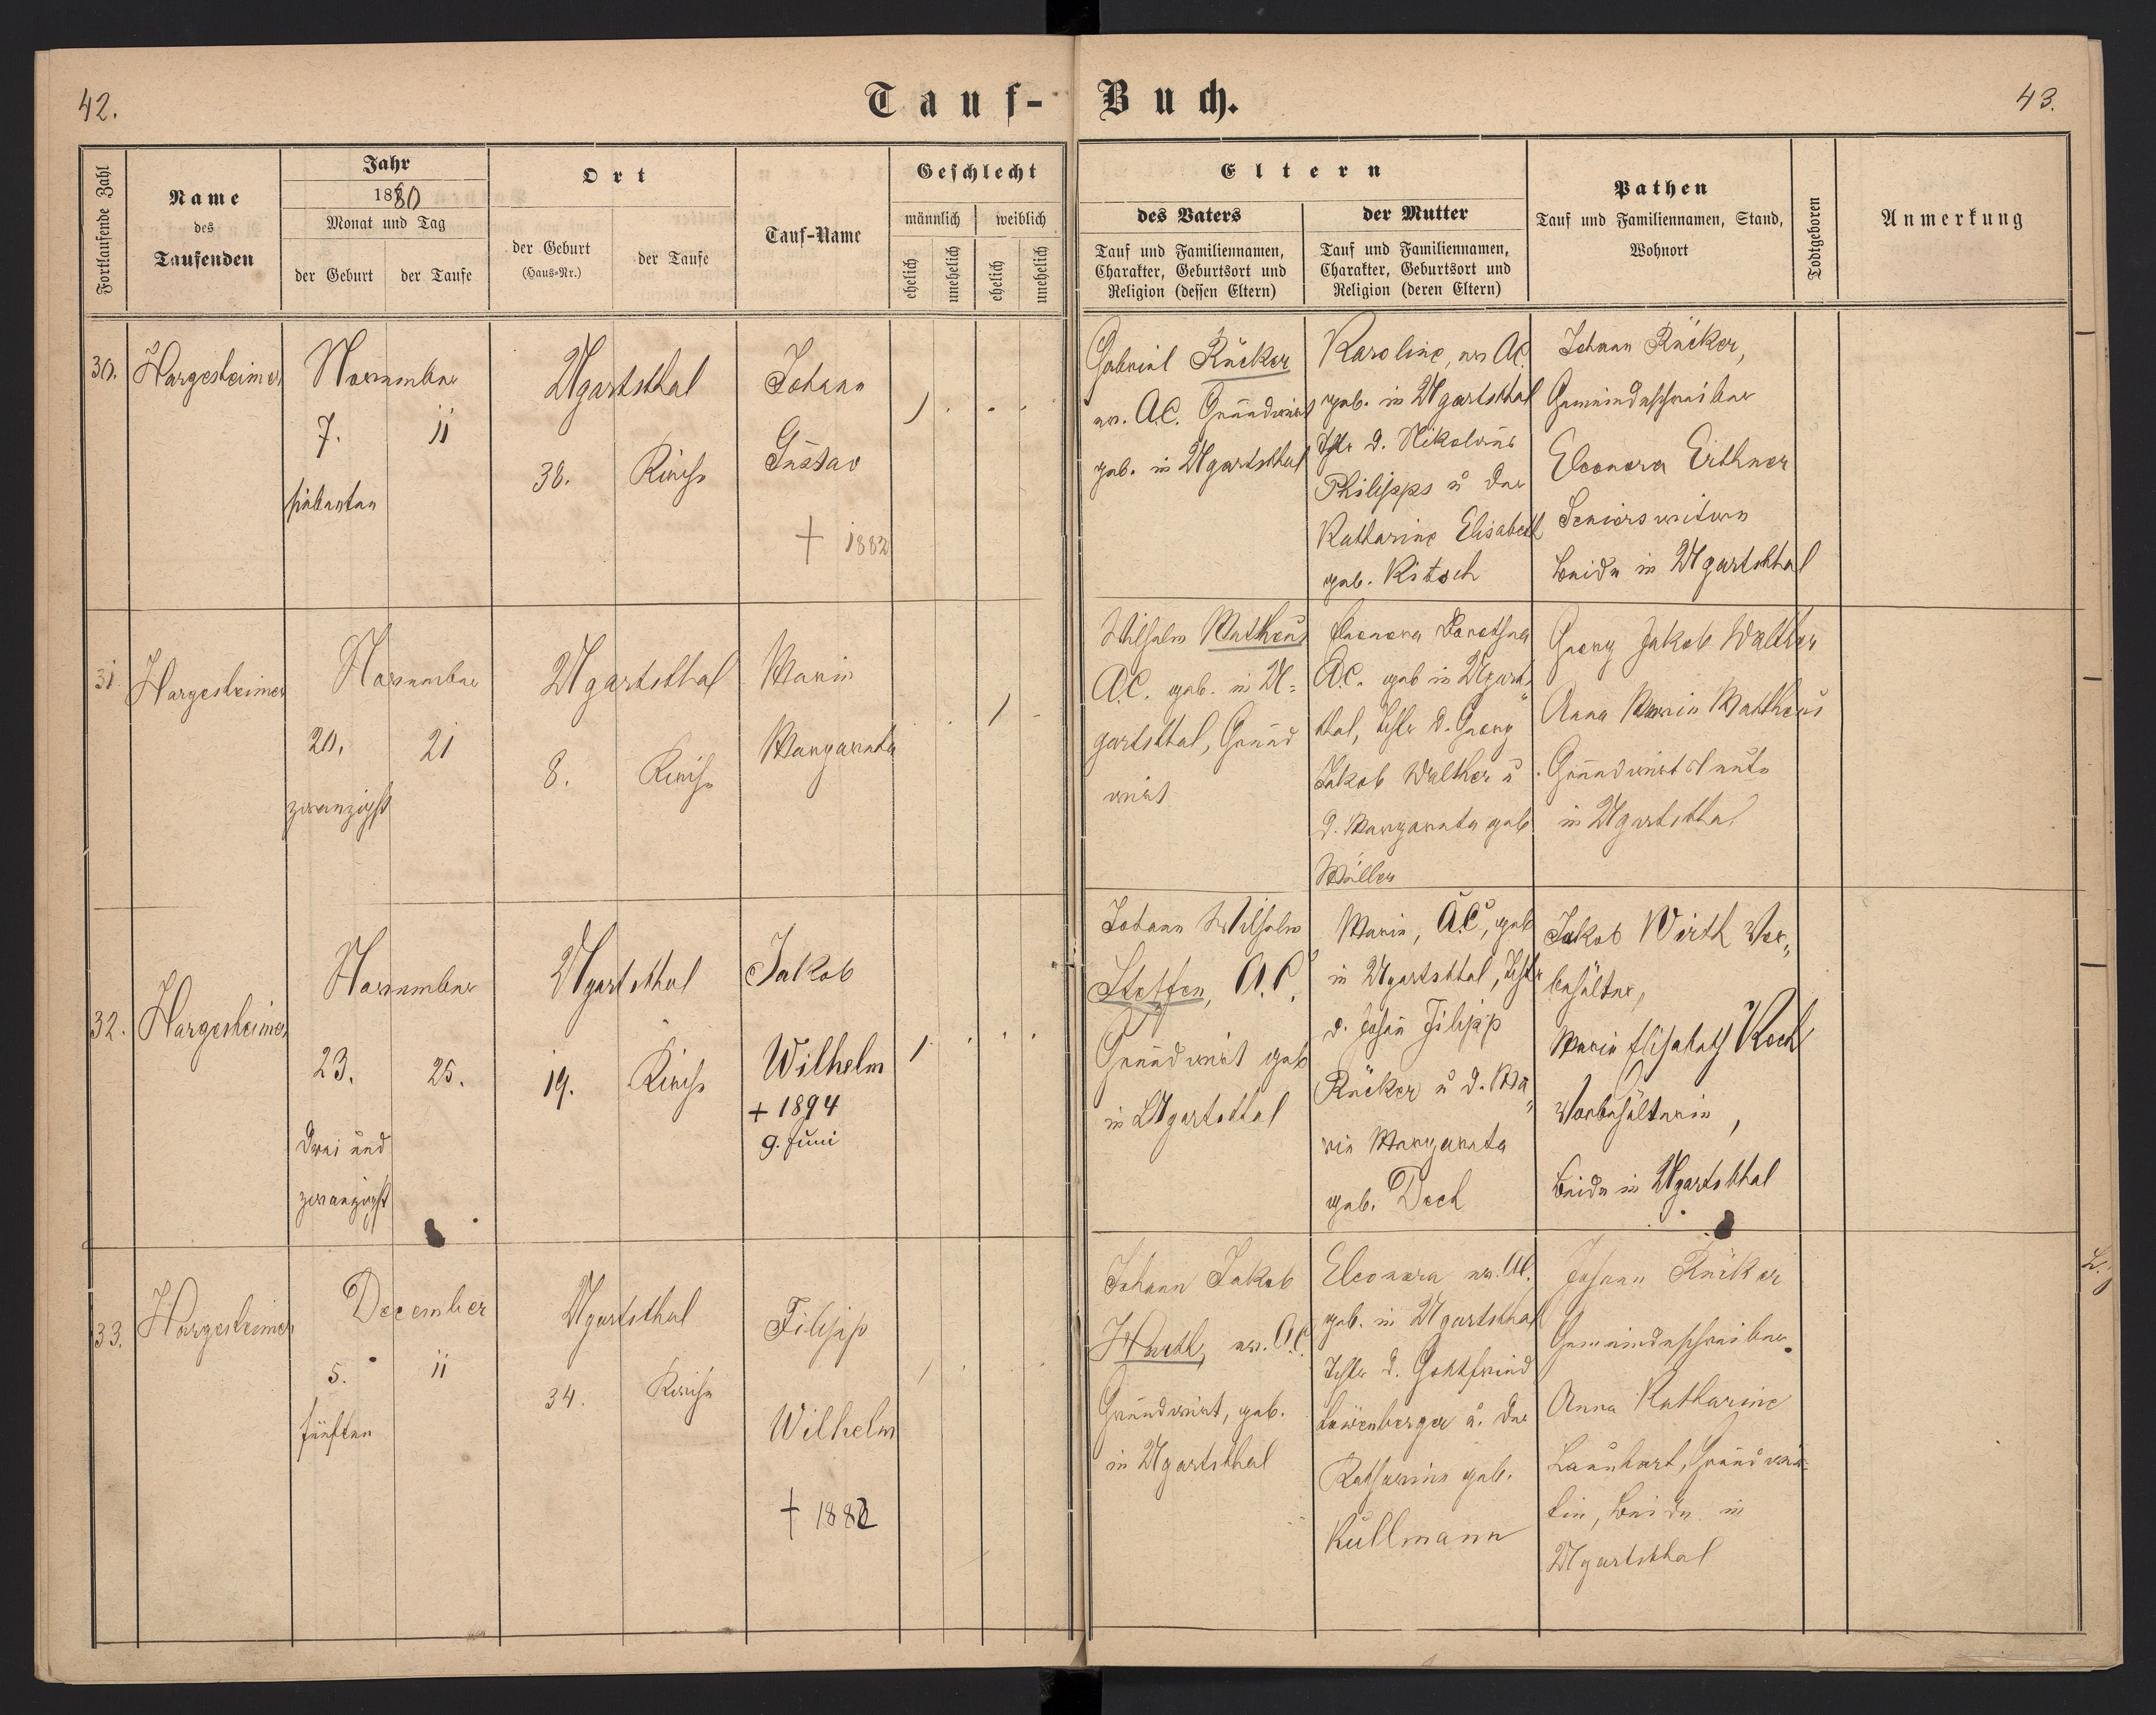 42.
Tauf-Buch.
43.
Fortlaufende Zahl
Name
des
Taufenden
Jahr
1880
Monat und Tag
der Geburt
der Taufe
Ort
der Geburt
(Haus-Nr.)
der Taufe
Tauf-Name
Geschlecht
männlich
weiblich
ehelich
unehelich
ehelich
unehelich
Eltern
des Vaters
Tauf und Familiennamen,
Charakter, Geburtsort und
Religion (dessen Eltern)
der Mutter
Tauf und Familiennamen,
Charakter, Geburtsort und
Religion (deren Eltern)
Pathen
Tauf und Familiennamen, Stand,
Wohnort
Todtgeboren
Anmerkung
30.
Hargesheimer
November
7.
11
siebenten
Ugartsthal
38.
Kirche
Johann
Gustav
† 1882
Gabriel Rücker
ev. A.C. Grundwirt
geb. in Ugartsthal
Karoline, ev. AC.
geb. in Ugartsthal
Tchtr d. Nikolaus
Philipps u der
Katharine Elisabeth
geb. Kitsch
Johann Rücker,
Gemeindeschreiber
Eleonora Erthner
Seniorswitwe
beide in Ugartsthal
31.
Hargesheimer
November
20.
21
zwanzigst
Ugartsthal
8.
Kirche
Marie
Margareta
Wilhelm Matheus
A.C. geb. in U=
gartsthal, Grund
wirt
Eleonora Dorothea
A.C. geb in Ugarts
thal, Tchtr d. Georg
Jakob Walther u
d. Margareta geb
Müller
Georg Jakob Walther
Anna Marie Mattheus
Grundwirtsleute
in Ugartsthal
32.
Hargesheimer
November
23.
25.
drei und
zwanzigst
Ugartsthal
19.
Kirche
Jakob
Wilhelm
+ 1894
9. Juni
Johann Wilhelm
Steffen, A.C.
Grundwirt geb
in Ugartsthal
Marie, A.C., geb
in Ugartsthal, Tchtr
d. Johan Filipp
Rücker u d. Ma
rie Margareta
geb. Dech
Jakob Wirth Vor„
behälter,
Marie Elisabeth Koch
Vorbehälterin,
beide in Ugartsthal
33.
Hargesheimer
December
5.
11
fünften
Ugartsthal
34.
Kirche
Filipp
Wilhelm
† 1882
Johann Jakob
ev. A.C.
Grundwirt, geb.
in Ugartsthal
Eleonora ev. AC.
geb. in Ugartsthal
Tchtr d. Gottfried
Löwenberger u. der
Katharina geb.
Kullmann
Johann Rücker
Gemeindeschreiber
Anna Katharine
Launhart, Grundwir=
tin, beide in
Ugartsthal